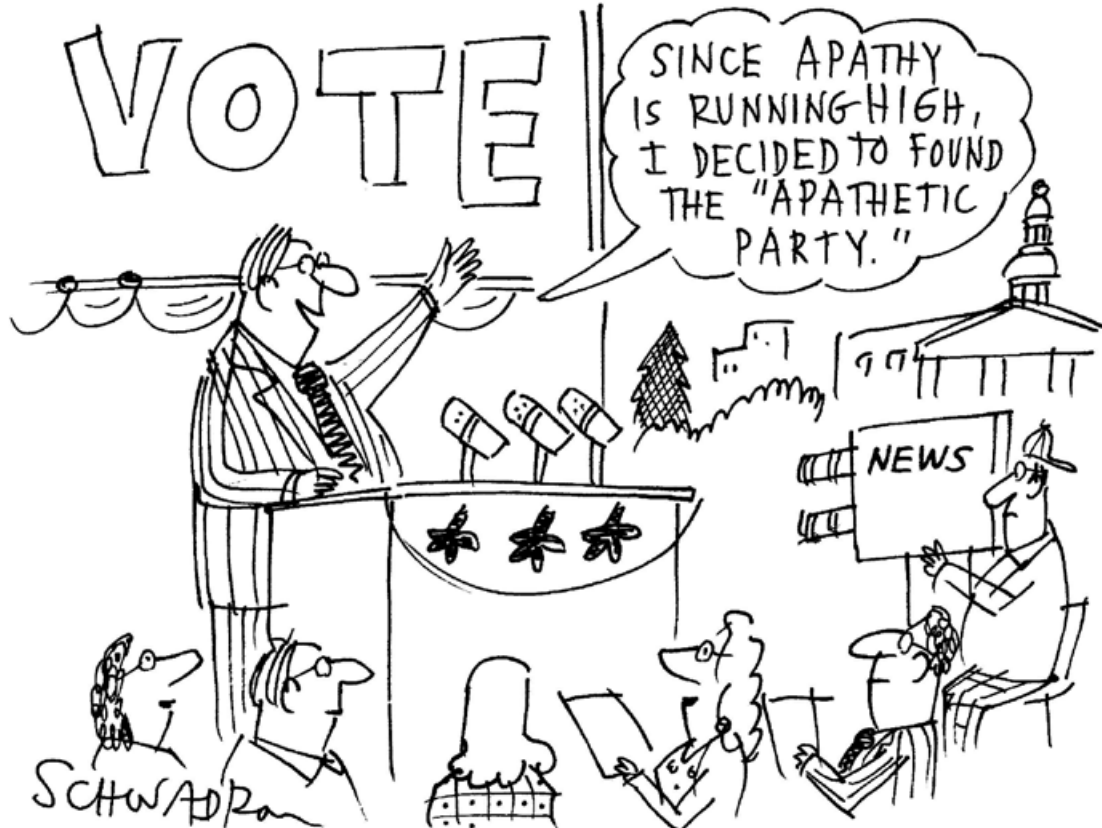 VOTE
SINCE APATHY
IS RUNNING HIGH,
I DECIDED TO FOUND
THE "APATHETIC
PARTY."
NEWS
SCHWADRon